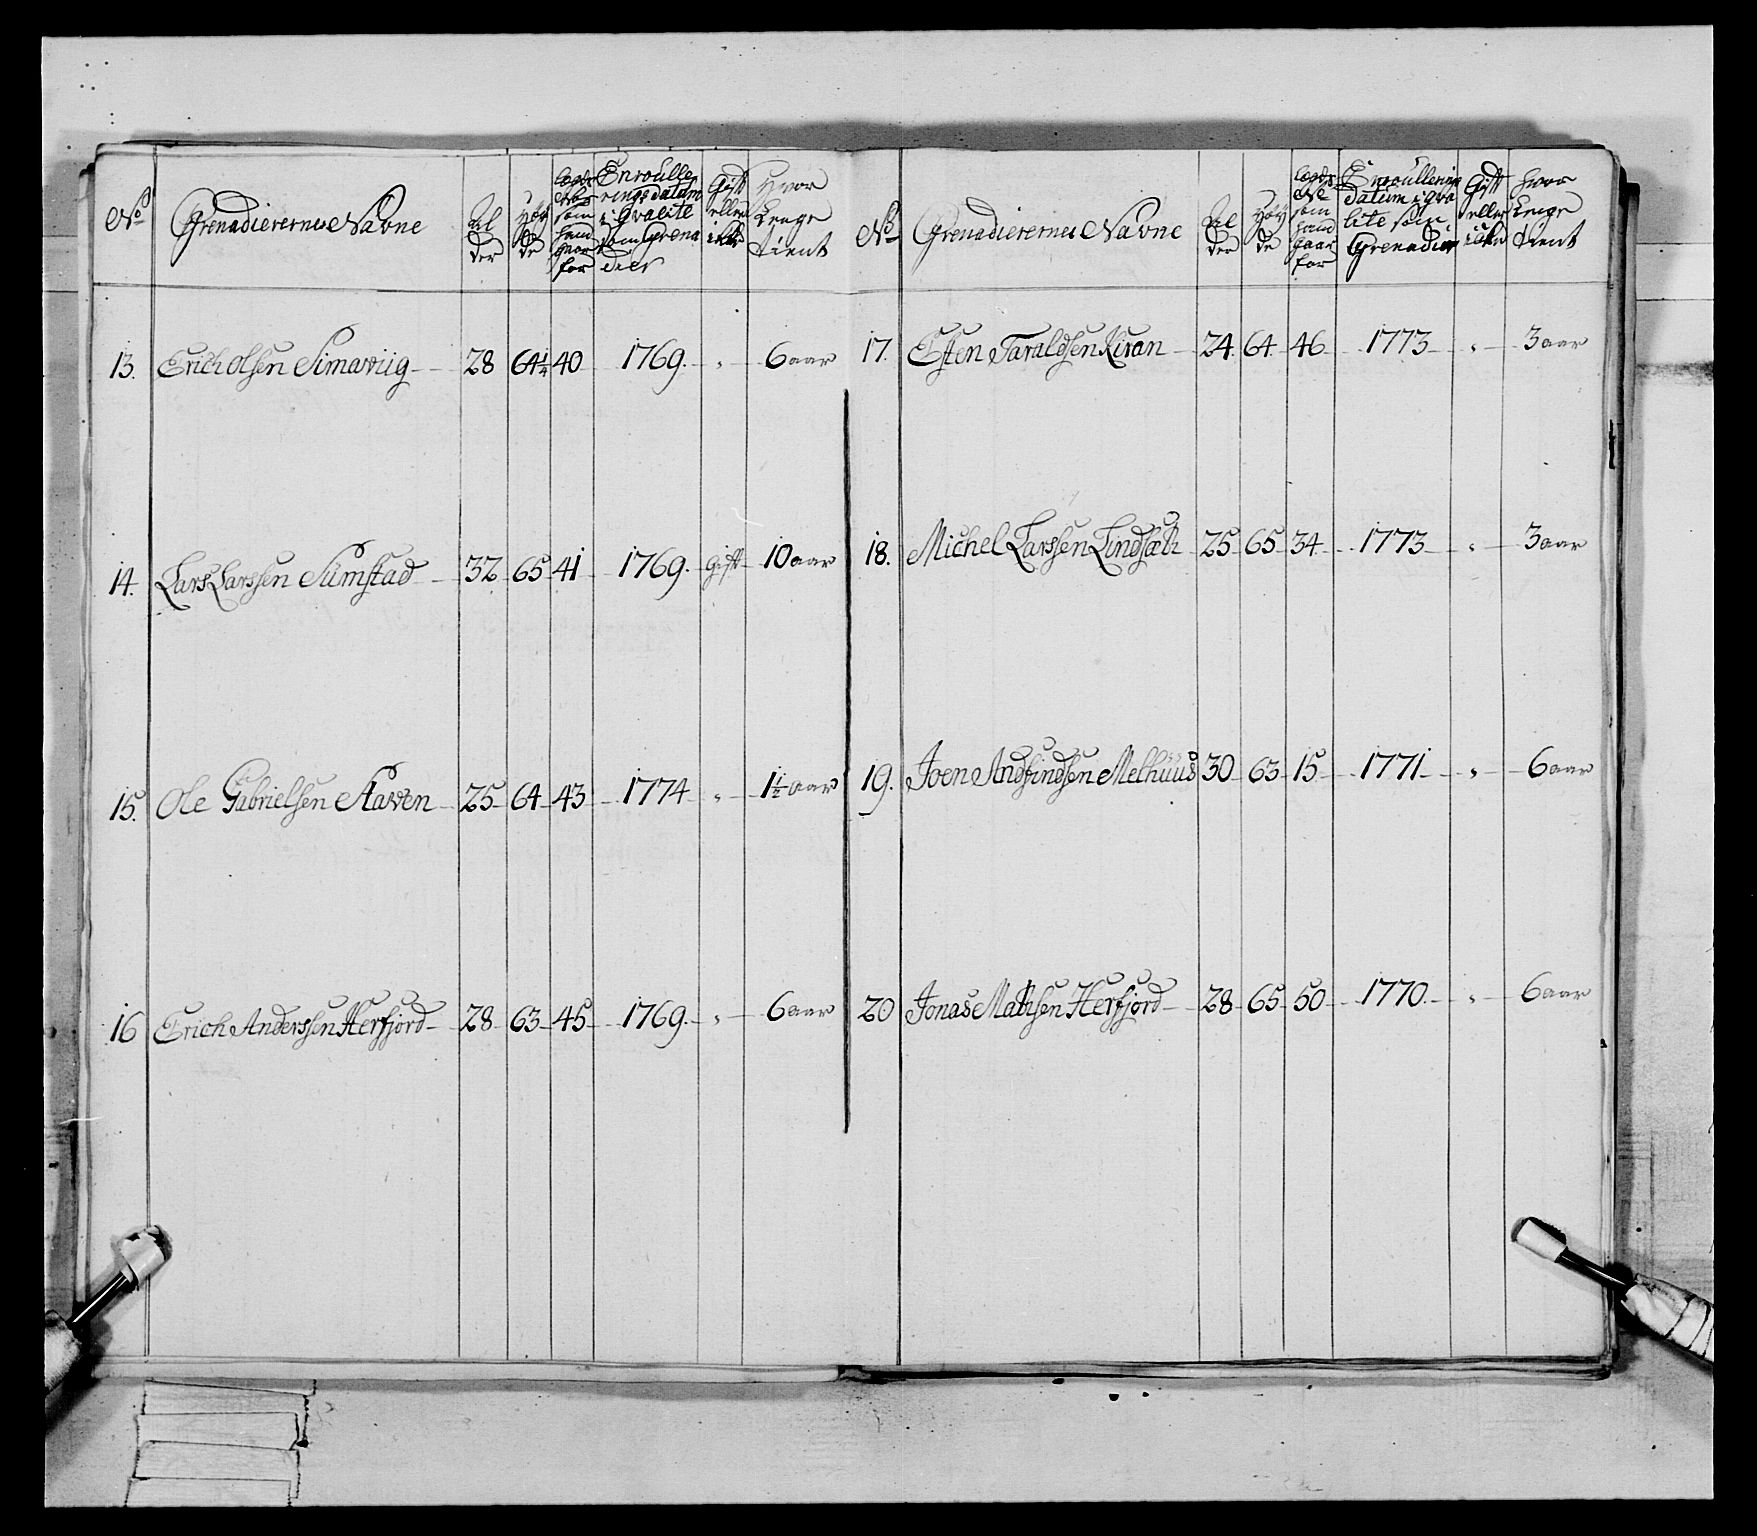 No Grenadierernes Navne Al der Høy de Legds No som hand gaar for Enroulle rings datum i Qvalite som Grena dier Gift eller ikke Hvor Lenge tient
13. Erich Olsen Simaviig 28 64¼ 40 1769. „ 6 aar
14. Lars Larssen Sumstad 32 65 41 1769. gift 10 aar
15. Ole Gabrielsen Staven 25 64 43 1774 „ 1½ aar
16 Erich Anderssen Herfjord 28 63 45 1769. „ 6 aar
No Grenadierernes Navne Al der Høy de Legds No som hand gaar for Enroullering datum i qva lite som Grenadier Gift eller ikke hvor Lenge tient
17. Esten Taraldsen Kiran 24 64 46 1773 „ 3 aar
18. Michel Larssen Lindsæth 25 65 34 1773 „ 3 aar
19. Joen Andfindsen Melhuus 30 63 15 1771 „ 6 aar
20 Jonas Mathsen Herfjord 28 65 50 1770. „ 6 aar